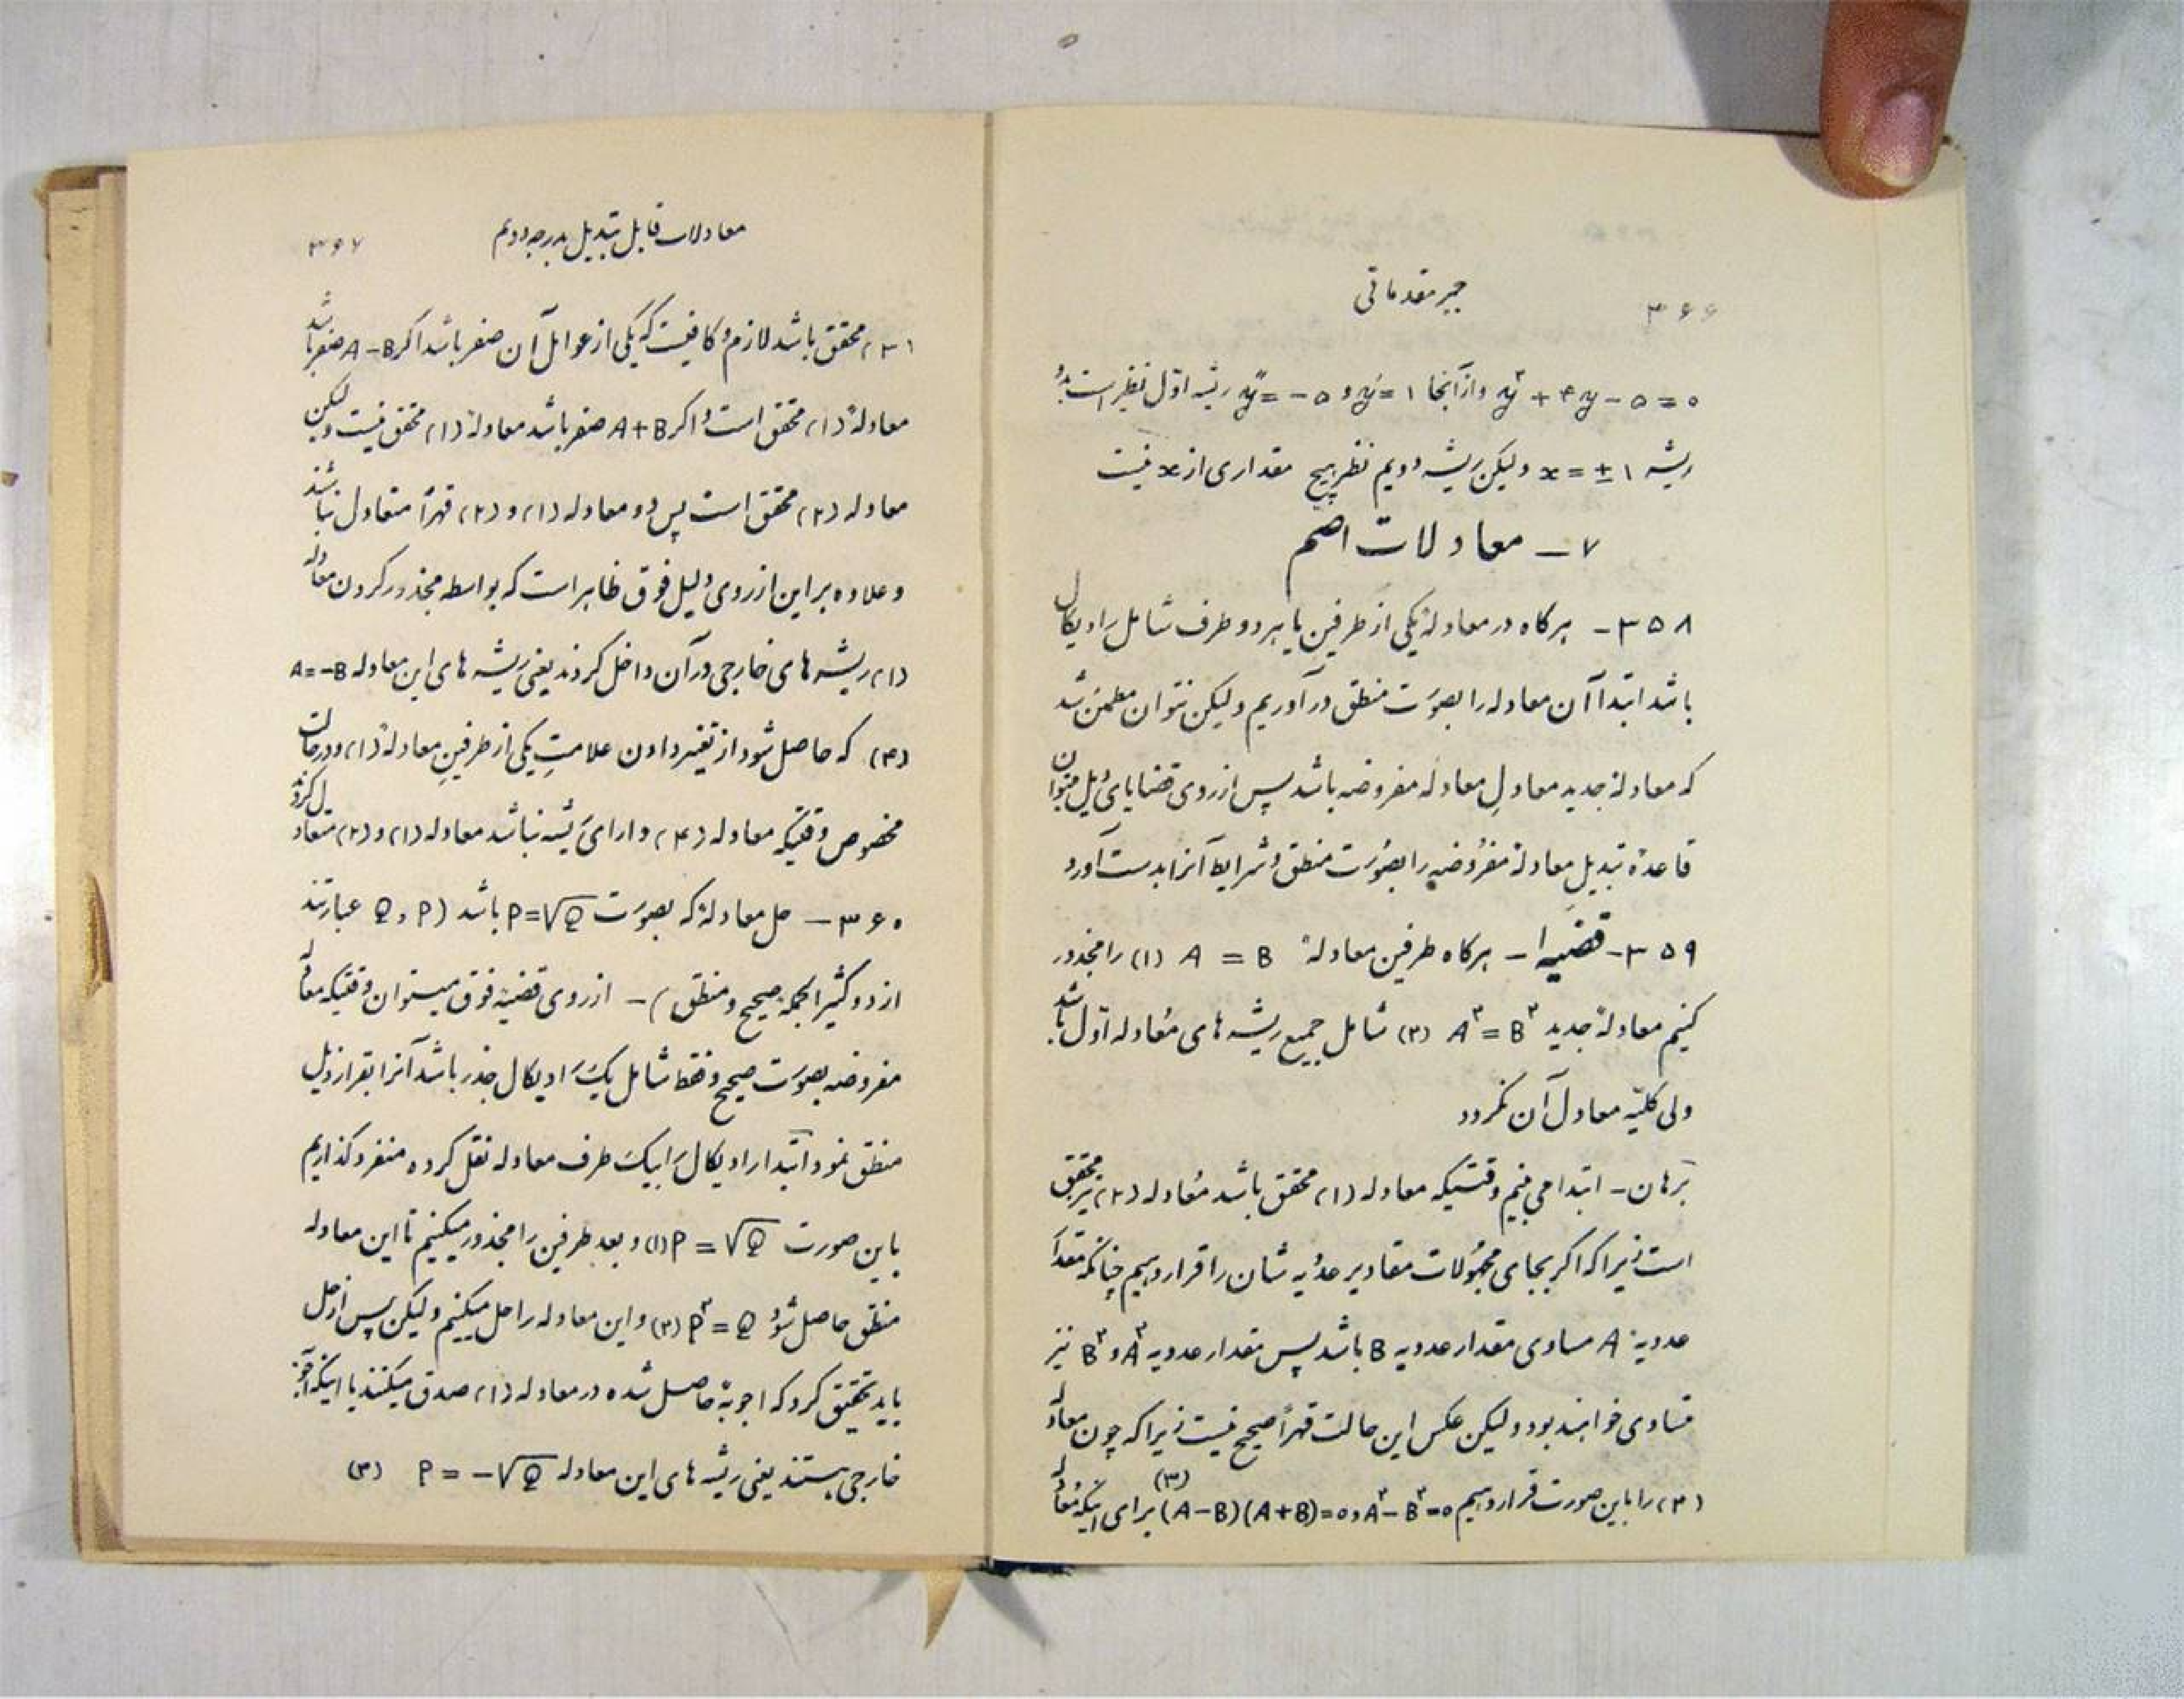 ۳۶۶
جبر مقدماتی
y² + ۴y − ۵ = ۰ و از آنجا y′ = ۱ و y″ = −۵ ریشه اوّل نظیر است بدو
ریشه x = ± ۱ ولیکن ریشه دویم نظیر هیچ مقداری از x نیست
۷ ــ معادلات اصم
۳۵۸ - هرگاه در معادلهٔ یکی از طرفین یا هر دو طرف شامل رادیکال
باشد ابتدا آن معادله را بصورت منطق درآوریم ولیکن نتوان مطمئن شد
که معادلهٔ جدید معادلِ معادله مفروضه باشد پس از روی قضایای ذیل میتوان
قاعدهٔ تبدیلِ معادلهٔ مفروضه را بصورت منطق و شرایط آنرا بدست آورد
۳۵۹ - قضیه ۱ - هرگاه طرفین معادلهٔ A = B (۱) را مجذور
کنیم معادلهٔ جدید A² = B² (۲) شامل جمیع ریشه های معادله اوّل باشد
ولی کلیّه معادل آن نگردد
برهان - ابتدا می بینم وقتیکه معادله (۱) محقق باشد معادله (۲) نیز محقق
است زیرا که اگر بجای مجهولات مقادیر عدویه شان را قرار دهیم چنانکه مقدار
عددیهٔ A مساوی مقدار عددیه B باشد پس مقدار عددیه A² و B² نیز
متساوی خواهند بود ولیکن عکس این حالت قهراً صحیح نیست زیرا که چون معادله
(۲) را باین صورت قرار دهیم A² − B² = ۰ و (A−B)(A+B) = ۰ (۳) برای اینکه معادله
معادلات قابل تبدیل بدرجه دویم
۳۶۷
(۳) محقق باشد لازم و کافیست که یکی از عوامل آن صفر باشد اگر A−B صفر باشد
معادلهٔ (۱) محقق است و اگر A+B صفر باشد معادلهٔ (۱) محقق نیست ولیکن
معادله (۲) محقق است پس دو معادله (۱) و (۲) قهراً متعادل نباشند
و علاوه بر این از روی دلیل فوق ظاهر است که بواسطه مجذور کردن معادله
(۱) ریشه های خارجی در آن داخل کردند یعنی ریشه های این معادله A = −B
(۴) که حاصل شود از تغییر دادن علامتِ یکی از طرفینِ معادلهٔ (۱) و در حالت
مخصوص وقتیکه معادله (۴) دارای ریشه نباشد معادله (۱) و (۲) متعادل گردند
۳۶۰ ــ حل معادلهٔ که بصورت P=√Q باشد (P و Q عبارتند
از دو کثیر الجملهٔ صحیح و منطق) - از روی قضیهٔ فوق میتوان وقتیکه معادله
مفروضه بصورت صحیح و فقط شامل یک رادیکال جذر باشد آنرا بقرار ذیل
منطق نمود ابتدا رادیکال را بیک طرف معادله نقل کرده منفرد گذاریم
باین صورت P = √Q (۱) و بعد طرفین را مجذور میکنیم تا این معادله
منطق حاصل شود P² = Q (۲) و این معادله را حل میکنیم ولیکن پس از حل
باید تحقیق کرد که اجوبهٔ حاصل شده در معادله (۱) صدق میکنند یا اینکه اجوبهٔ
خارجی هستند یعنی ریشه های این معادله P = −√Q (۳)